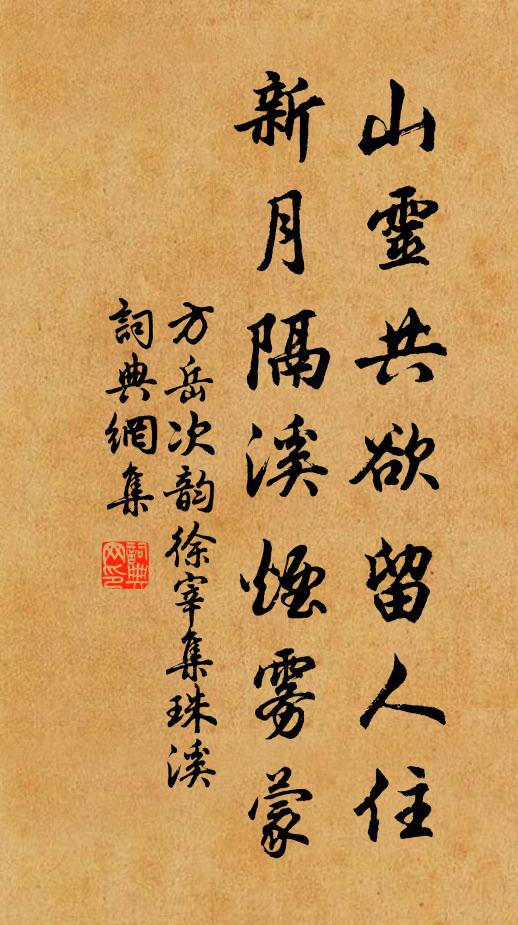 山靈共欲留人住
新月隔溪煙雾蒙
方岳次韵徐宰集珠溪
詞典網集
詞典网印